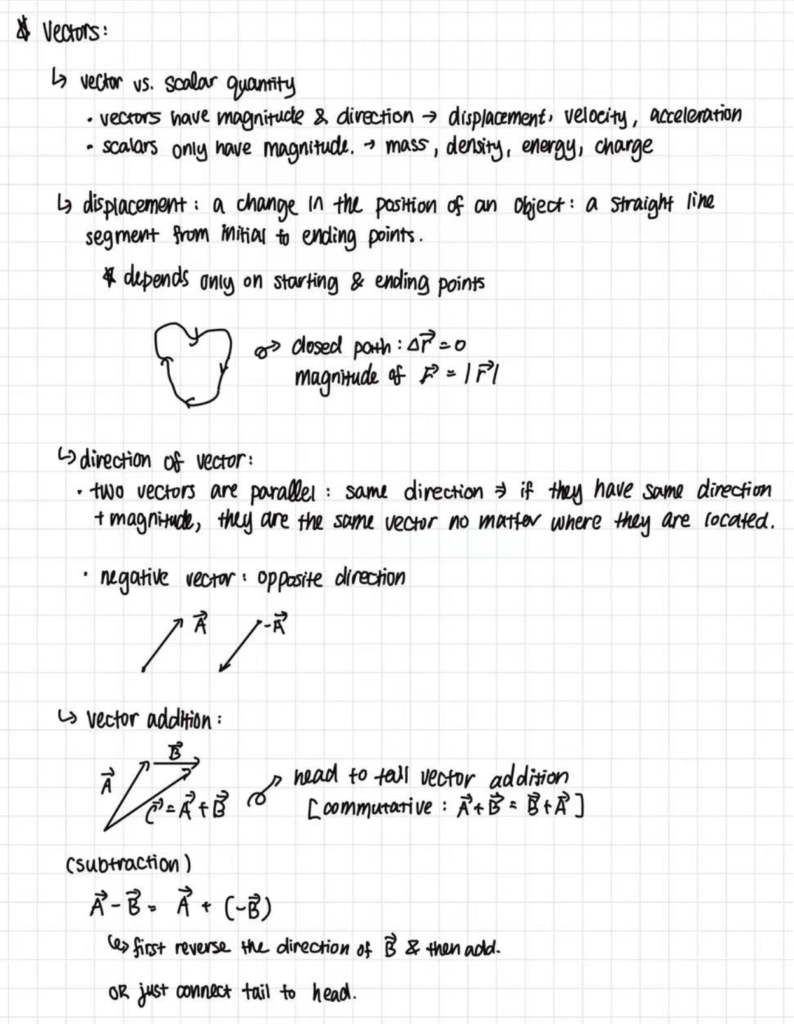 * Vectors:
↳ vector vs. scalar quantity
• vectors have magnitude & direction → displacement, velocity, acceleration
• scalars only have magnitude. → mass, density, energy, charge
↳ displacement : a change in the position of an object : a straight line
segment from initial to ending points.
* depends only on starting & ending points
closed path : Δr⃗ = 0
magnitude of r⃗ = |r⃗|
↳ direction of vector:
• two vectors are parallel : same direction ⇒ if they have same direction
+ magnitude, they are the same vector no matter where they are located.
• negative vector : opposite direction
A⃗ -A⃗
↳ vector addition :
B⃗
A⃗
C⃗ = A⃗ + B⃗
head to tail vector addition
[commutative : A⃗ + B⃗ = B⃗ + A⃗]
(subtraction)
A⃗ - B⃗ = A⃗ + (-B⃗)
↳ first reverse the direction of B⃗ & then add.
OR just connect tail to head.